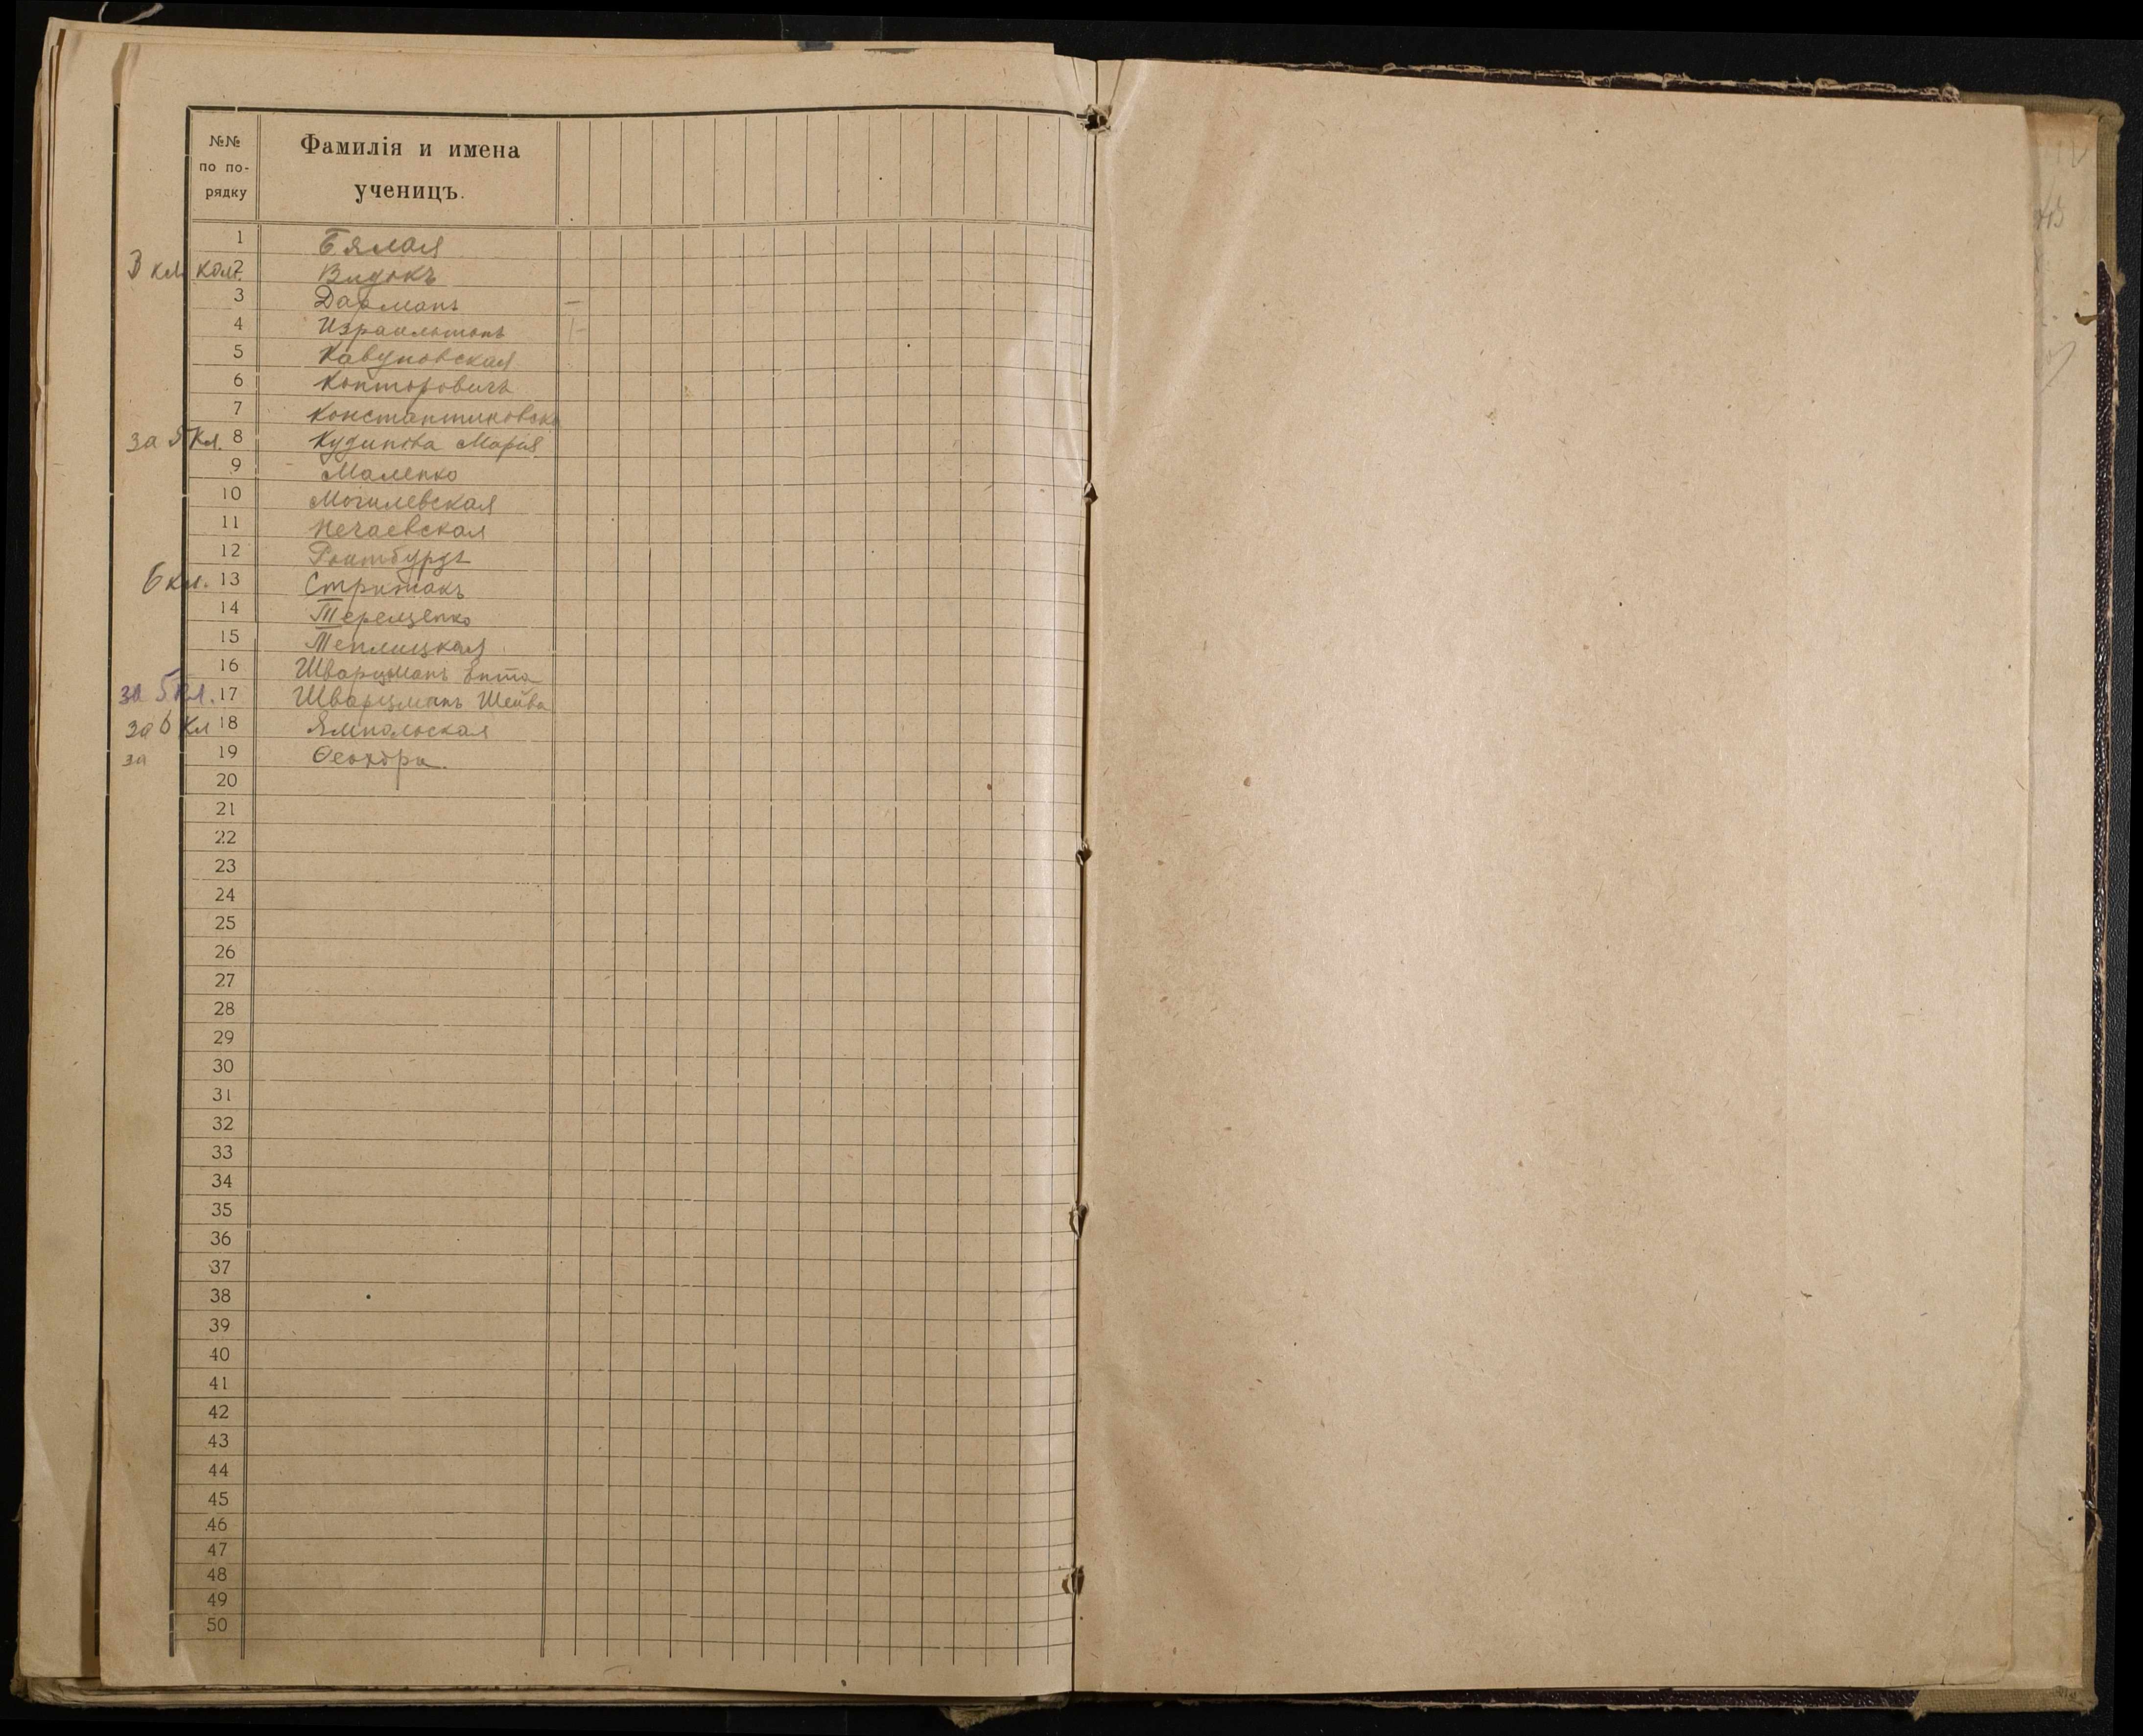 №№ по по-рядку
Фамилія и имена
ученицъ.
1 Бялая
3 кл. 2 Видокъ
3 Дарманъ
4 Израильтянъ
5 Кавуновская
6 Конторовичъ
7 Константиновска
за 5 кл. 8 Кудинова Марія
9 Маленко
10 Могилевская
11 Нечаевская
12 Роитбурдъ
6 кл. 13 Стрижакъ
14 Терещенко
15 Теплицкая
16 Шварцманъ Ента
за 5 кл. 17 Шварцманъ Шейва
за 6 кл 18 Ямпольская
за 19
20
21
22
23
24
25
26
27
28
29
30
31
32
33
34
35
36
37
38
39
40
41
42
43
44
45
46
47
48
49
50